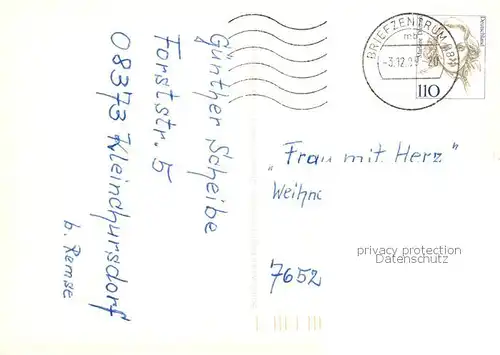 Günther Scheibe
Forststr. 5
08373 Kleinchursdorf
b. Remse
BRIEFZENTRUM
mb
-3.12.99 20
Deutschland
110
„Frau mit Herz"
Weihnc
7652
privacy protection
Datenschutz